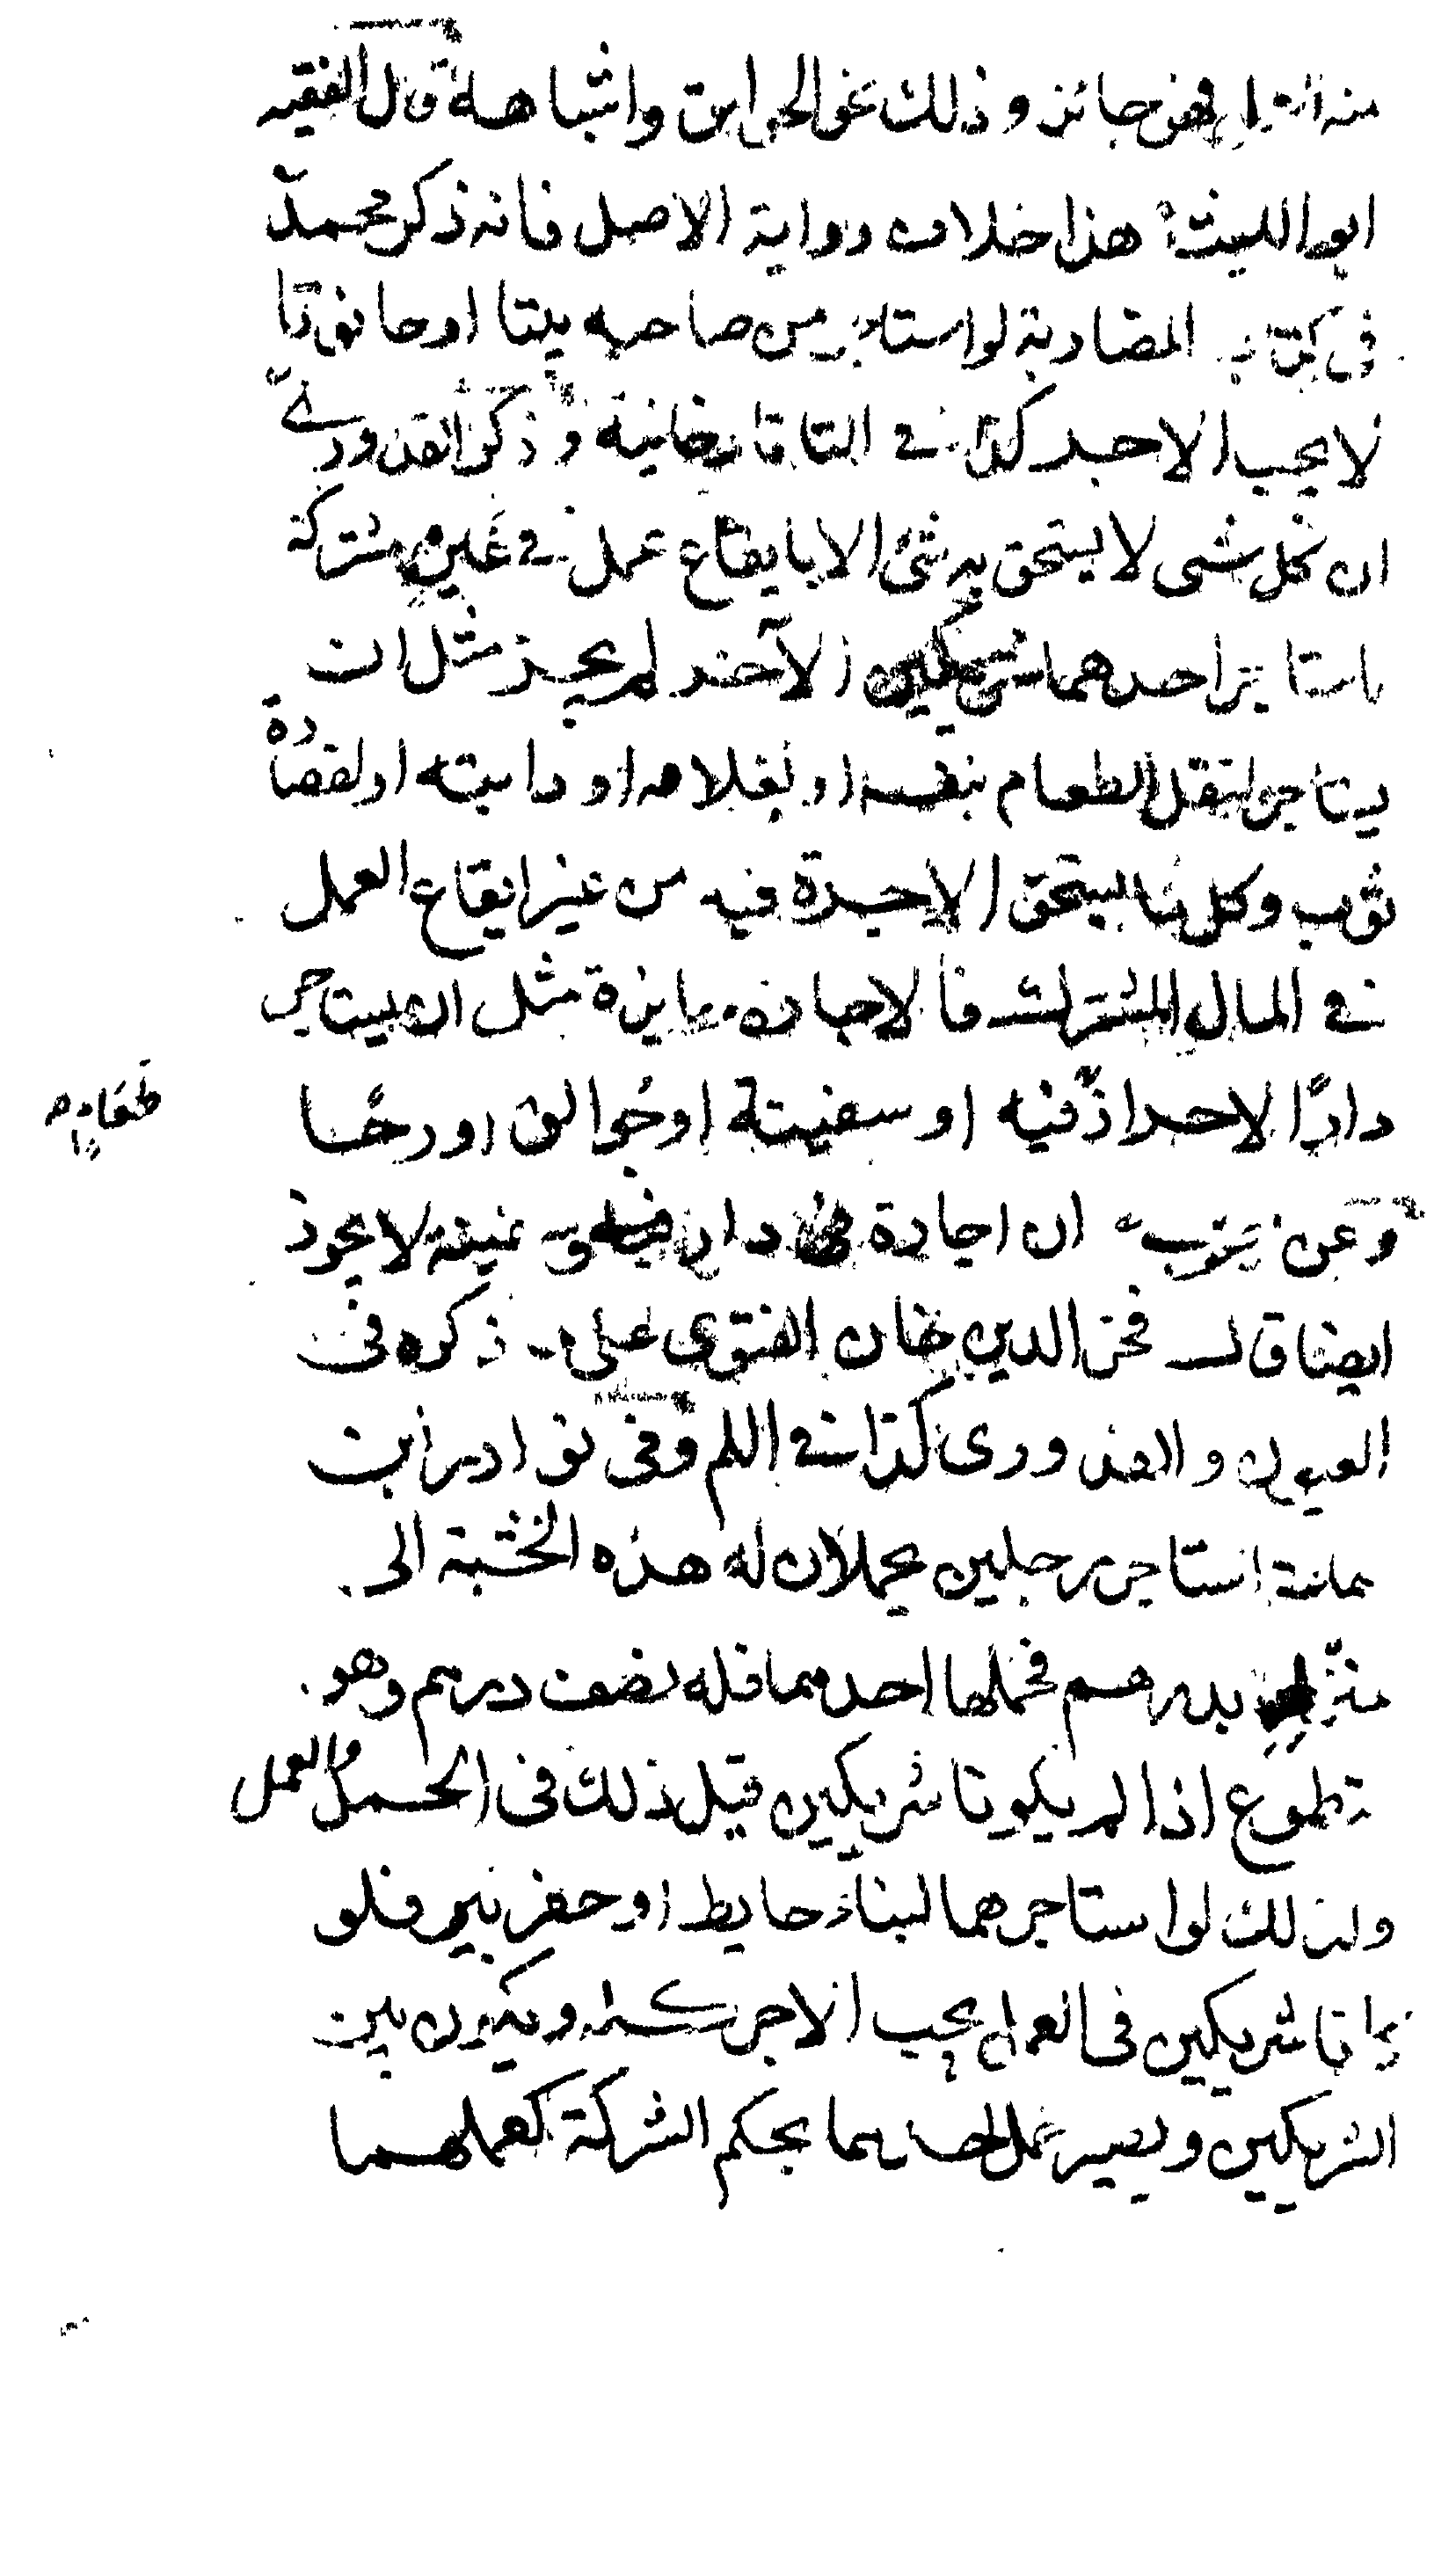 فهو جائز وذلك نحو الجواليق واشباهه قال الفقيه
ابو الليث هذا خلاف رواية الاصل فانه ذكر محمد
فى كتاب المضاربة لو استاجر من صاحبه بيتا او حانوتا
لا يجب الاجر كذا فى التاتارخانية وذكر القدورى
ان كل شى لا يستحق به شئ الا بايقاع عمل فى عين مشتركة
احدهما شريكين الآخر لم يجز مثل ان
يستاجر لنقل الطعام بنفسه او بغلامه او دابته او لقصارة
ثوب وكل ما يستحق الاجرة فيه من غير ايقاع العمل
فى المال المشترك فالاجارة جايزة مثل ان يستاجر
دارًا لاحراز فيه او سفينة او جُوالق او رحًا
طعامهم
وعن ان اجارة دار لا يجوز
ايضا قال فخر الدين خان الفتوى على ذكره فى
العيون وروى كذا فى وفى نوادر ابن
سماعة استاجر رجلين يحملان له هذه الخشبة الى
منزله بدرهم فحملها احدهما فله نصف درهم وهو
تطوع اذا لم يكونا شريكين قبل ذلك فى الحمل والعمل
وكذلك لو استاجرهما لبناء حايط او حفر بير فلو
كانا شريكين فى العمل يجب الاجر كله ويكون بين
الشريكين ويصير عمل احدهما بحكم الشركة كعملهما